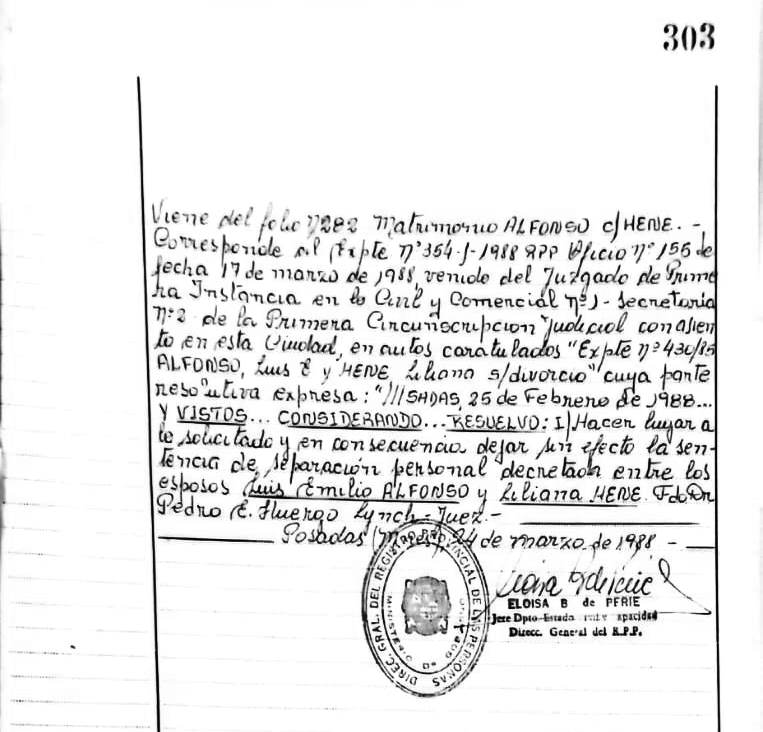 303
Viene del folio nº 282 Matrimonio ALFONSO c/HENE. -
Corresponde al Expte nº 354-J-1988 RPP Oficio nº 155 de
fecha 17 de marzo de 1988, venido del Juzgado de Prime
ra Instancia en lo Civil y Comercial nº 1 - Secretaria
nº 2 de la Primera Circunscripcion Judicial con asien
to en esta Ciudad, en autos caratulados "Expte nº 430/85
ALFONSO, Luis E y HENE Liliana s/divorcio" cuya parte
resolutiva expresa: "///SADAS, 25 de Febrero de 1988...
Y VISTOS... CONSIDERANDO... RESUELVO: I) Hacer lugar a
lo solicitado y en consecuencia dejar sin efecto la sen-
tencia de separación personal decretada entre los
esposos Luis Emilio ALFONSO y Liliana HENE. Fdo Dr
Pedro E. Huergo Lynch - Juez. -
Posadas 24 de marzo de 1988 -
DIREC. GRAL. DEL REGISTRO PROVINCIAL DE LAS PERSONAS
MINISTERIO DE
ELOISA B de PERIE
Jefe Dpto Estado Capacidad
Direcc. General del R.P.P.